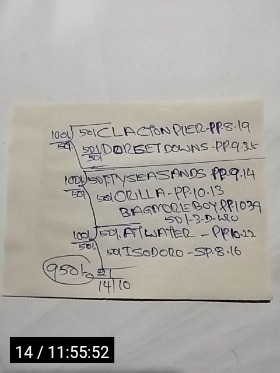 100/- 50/ CLACTON PIER-PP.8.19
50/ 50/ DORSET DOWNS-PP.9.35
50/
100/- 50/ TYSEASANDS PP.9.14
50/ 50/ ORILLA-PP.10.13
BAGMOREBOY PP.1039
50/-3-D-
100/- 50/. ATWATER - PP.10.22
50/ 50/ ISODORO-SP.8.16
950/-
14/10
14 / 11:55:52